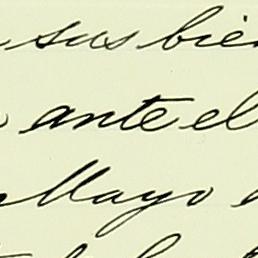 sus bie
ante el
Mayo